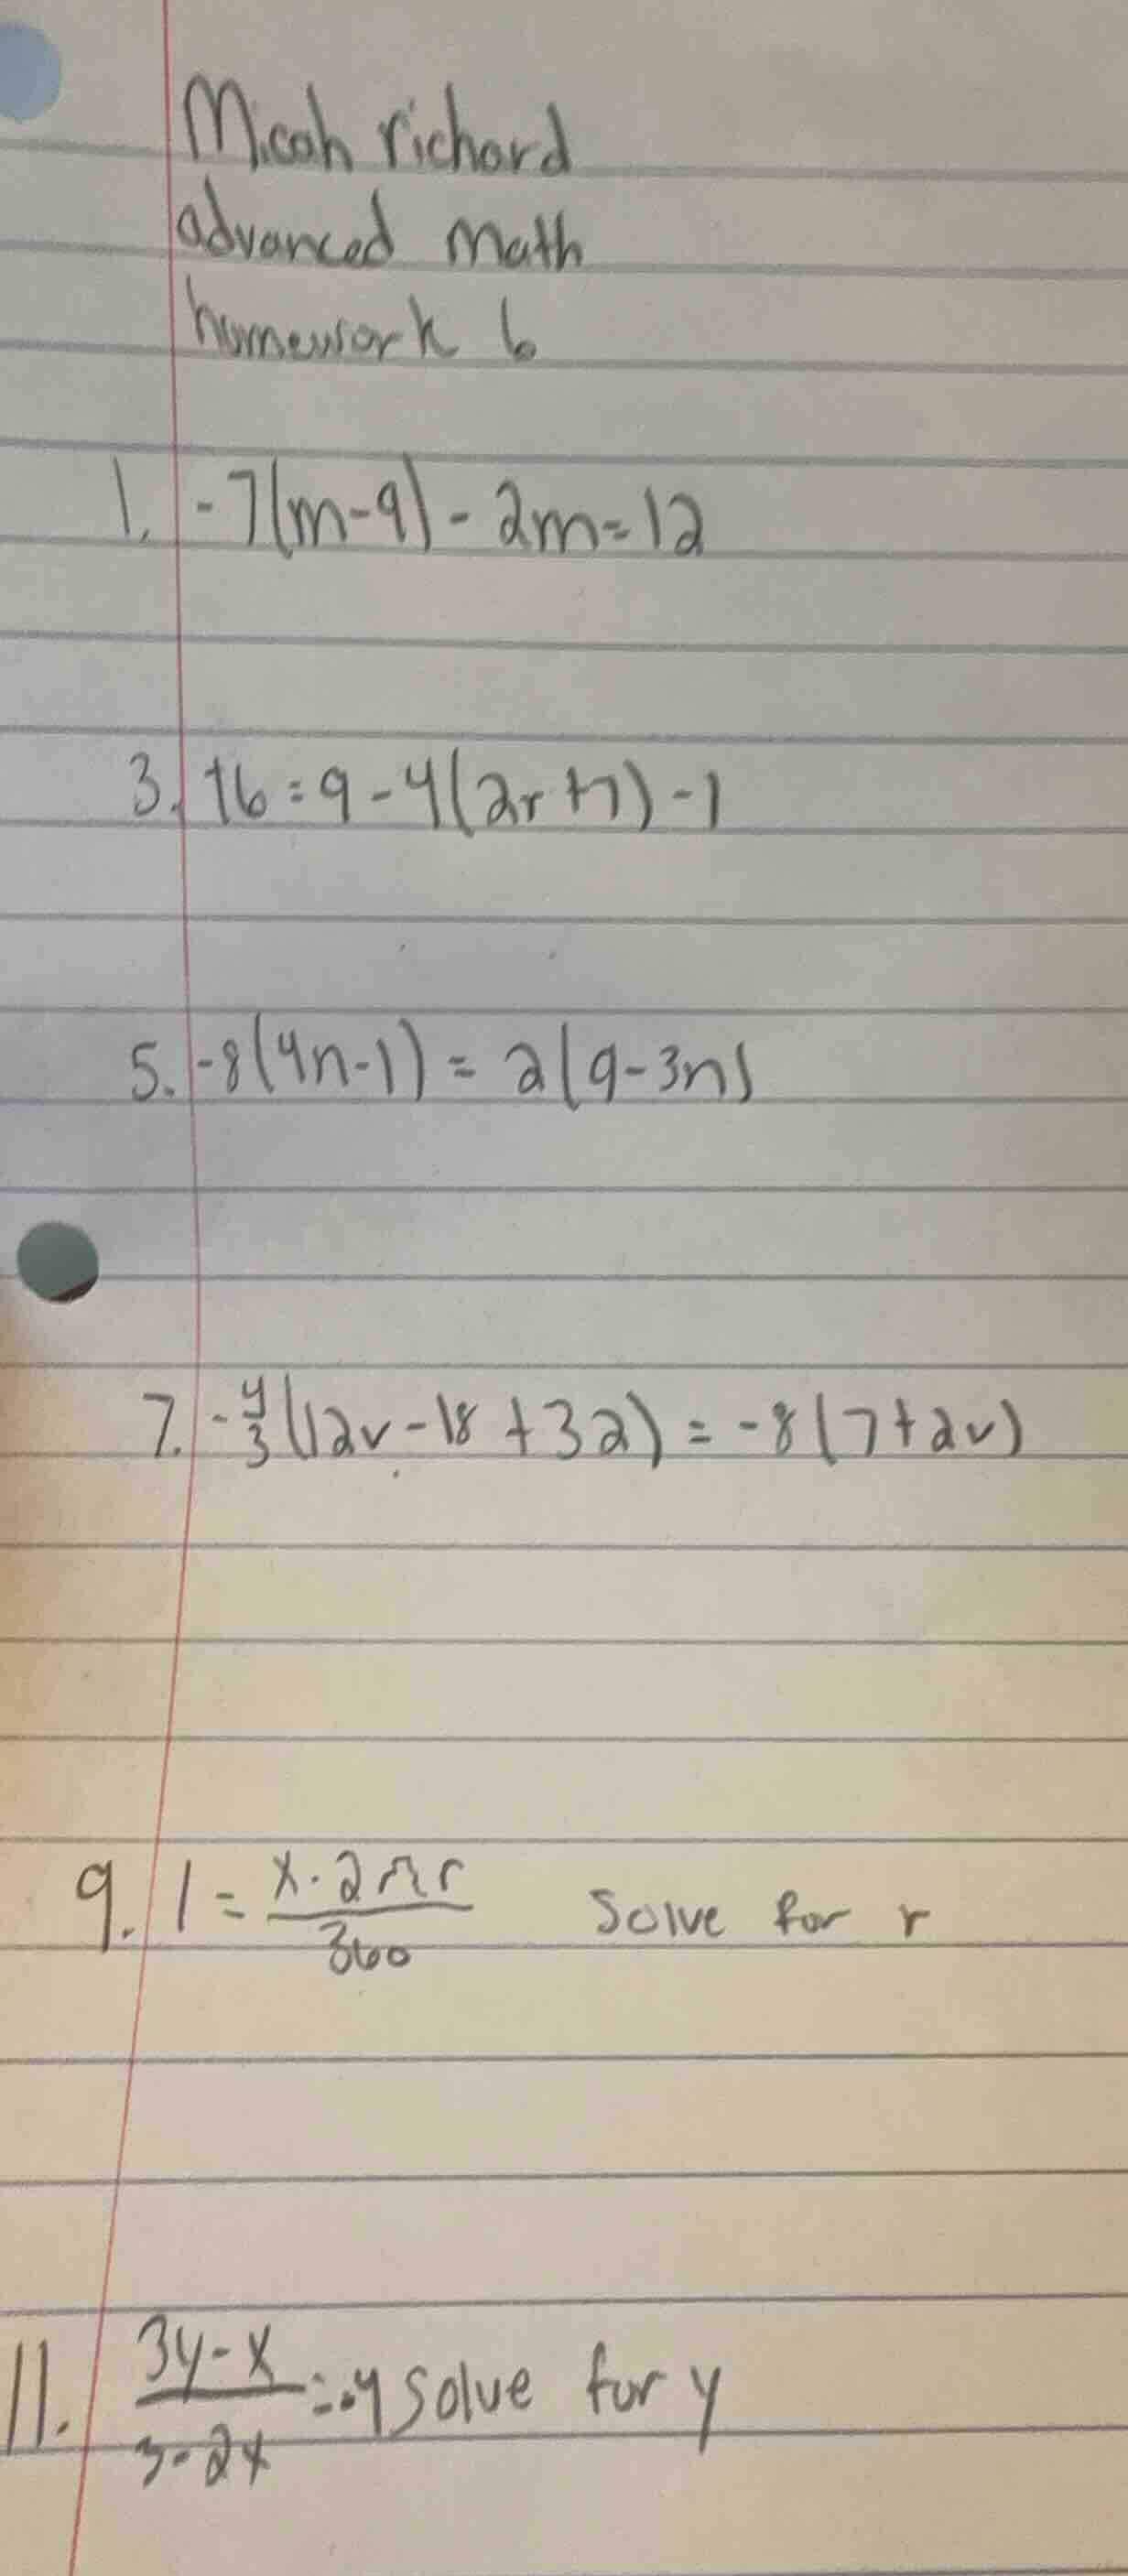 Micah richard
advanced math
homework 6
1. -7(m-9) - 2m=12
3. 16 = 9 - 4(2r+7) -1
5. -8(4n-1) = 2(9-3n)
7. -4/3(12v-18+32) = -8(7+2v)
9. 1 = x·2πr/360 Solve for r
11. 3y-x/3-2x =-4 solve for y